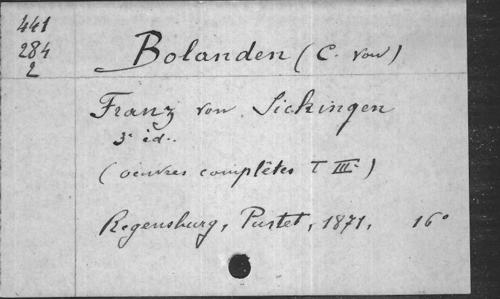 441
284
2
Bolanden (C. von)
Franz von Sickingen
3e éd.
(oeuvres complètes T III)
Regensburg, Pustet, 1871. 16°